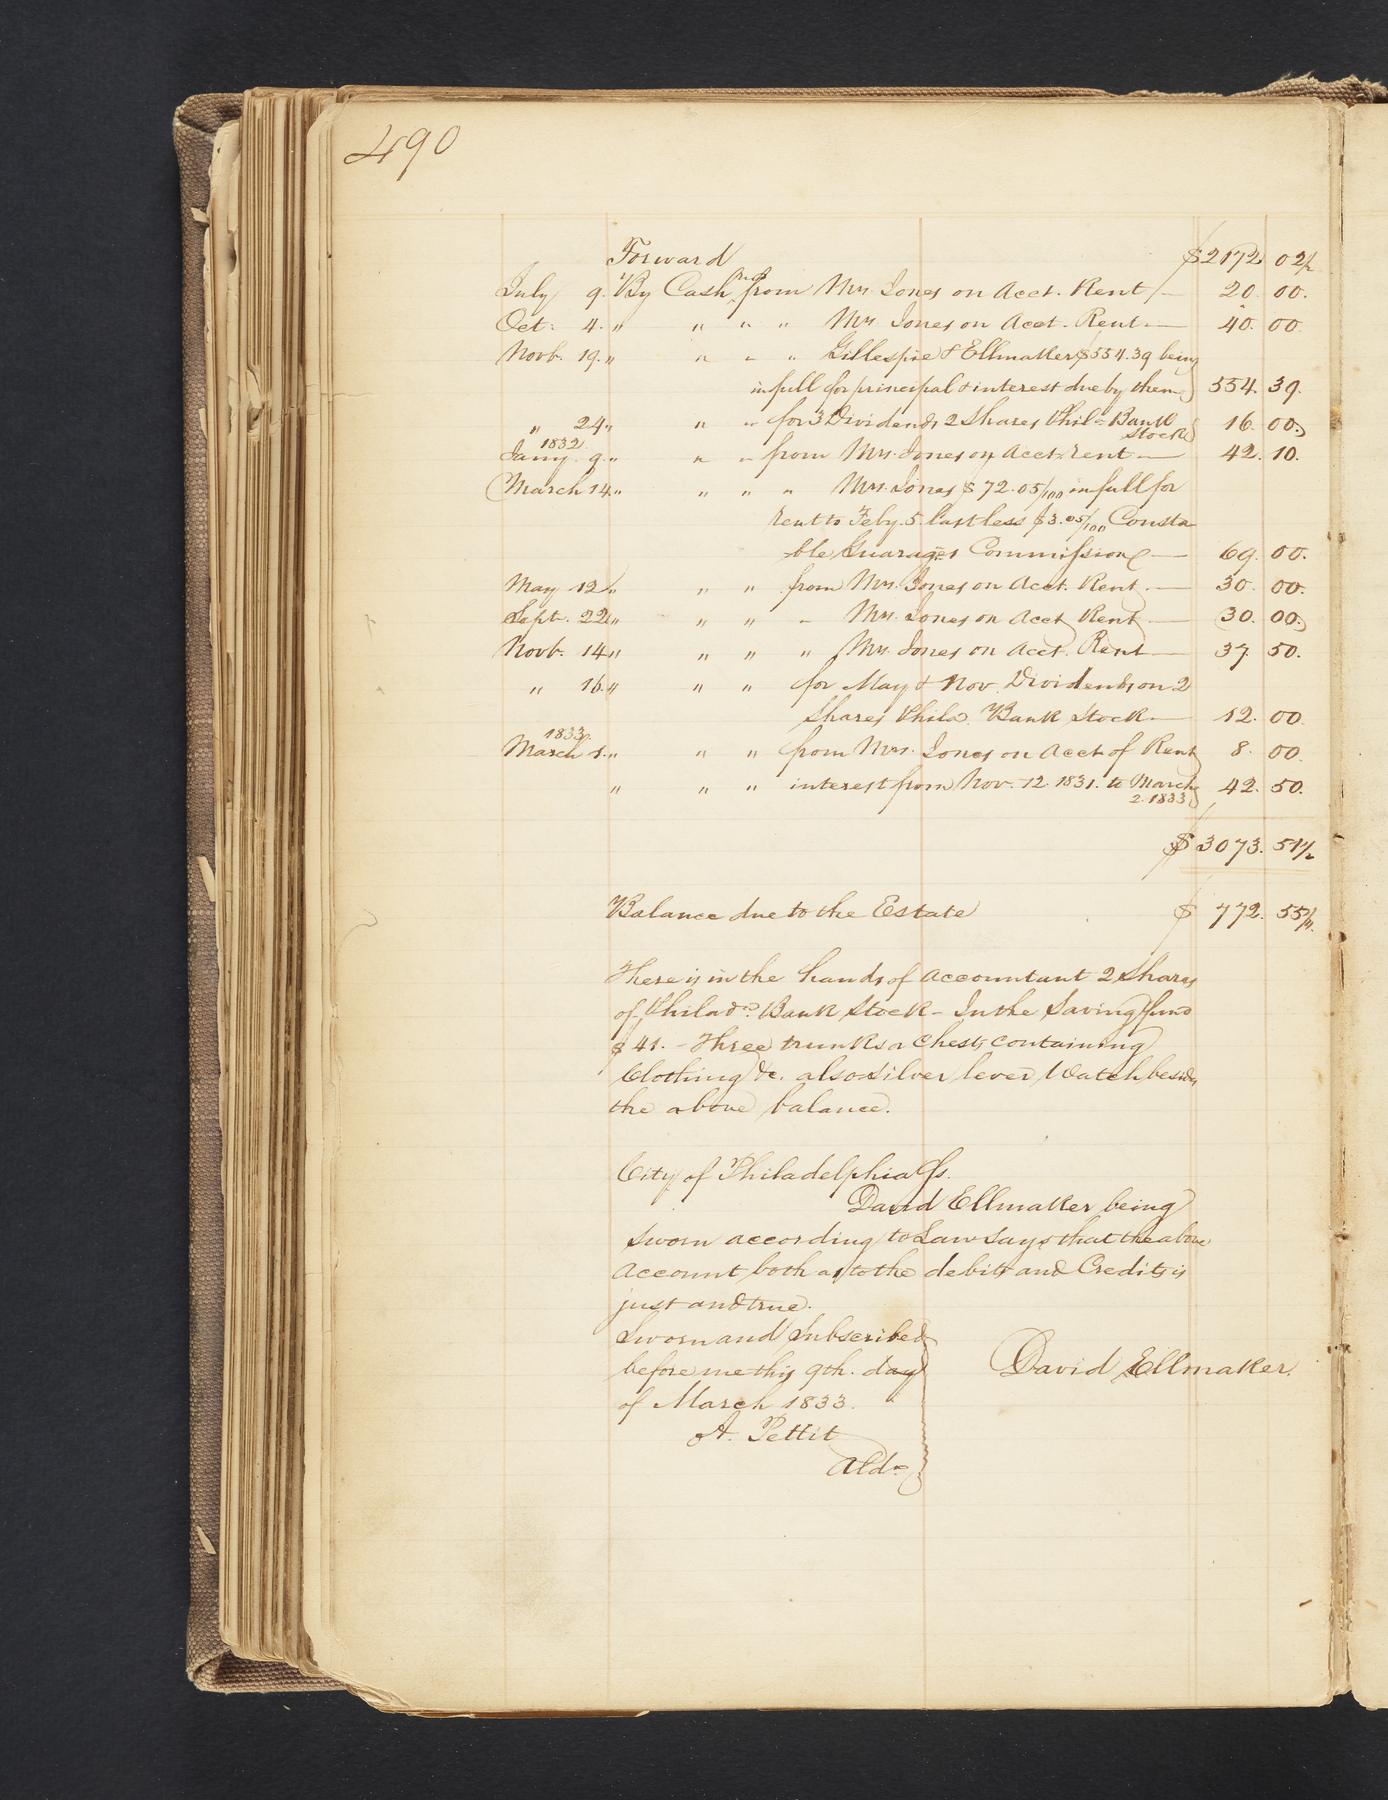 490
Forward $2172 02½
July 9. By Cash recd from Mrs. Jones on Acct. Rent — 20 00.
Oct. 4. " " " " Mrs Jones on Acct. Rent. — 40. 00
Novb. 19. " " " " Gillespie & Ellmaker $554.39 being
in full for principal & interest due by them 554. 39.
" 24 " " " for 3 Dividends 2 Shares Phila Bank 16. 00.
Stock
1832
Jany. 9. " " " from Mrs. Jones on Acct. rent — 42. 10.
March 14 " " " " Mrs. Jones $72.05/100 in full for
rent to Feby. 5. last less $3.05/100 Consta
ble Commission — 69. 00.
May 12 " " " from Mrs. Jones on Acct. Rent. — 30. 00.
Sept. 22 " " " " Mrs. Jones on Acct Rent — 30. 00.
Novb. 14 " " " " Mrs. Jones on Acct. Rent — 37. 50.
" 16 " " " for May & Nov. Dividends on 2
Shares Phila. Bank Stock — 12. 00
1833.
March 1. " " " from Mrs. Jones on Acct of Rent 8. 00.
" " " interest from Nov. 12. 1831. to March 42. 50.
2. 1833
$3073. 51½
Balance due to the Estate $772. 55½
There is in the hands of Accountant 2 Shares
of Philada. Bank Stock - In the Saving fund
$41. - Three trunks or Chests containing
Clothing &c. also Silver lever Watch besides
the above balance.
City of Philadelphia Ss.
David Ellmaker being
sworn according to Law says that the above
Account both as to the debits and Credits is
just and true.
Sworn and Subscribed
before me this 9th. day David Ellmaker.
of March 1833.
A. Pettit
Aldn